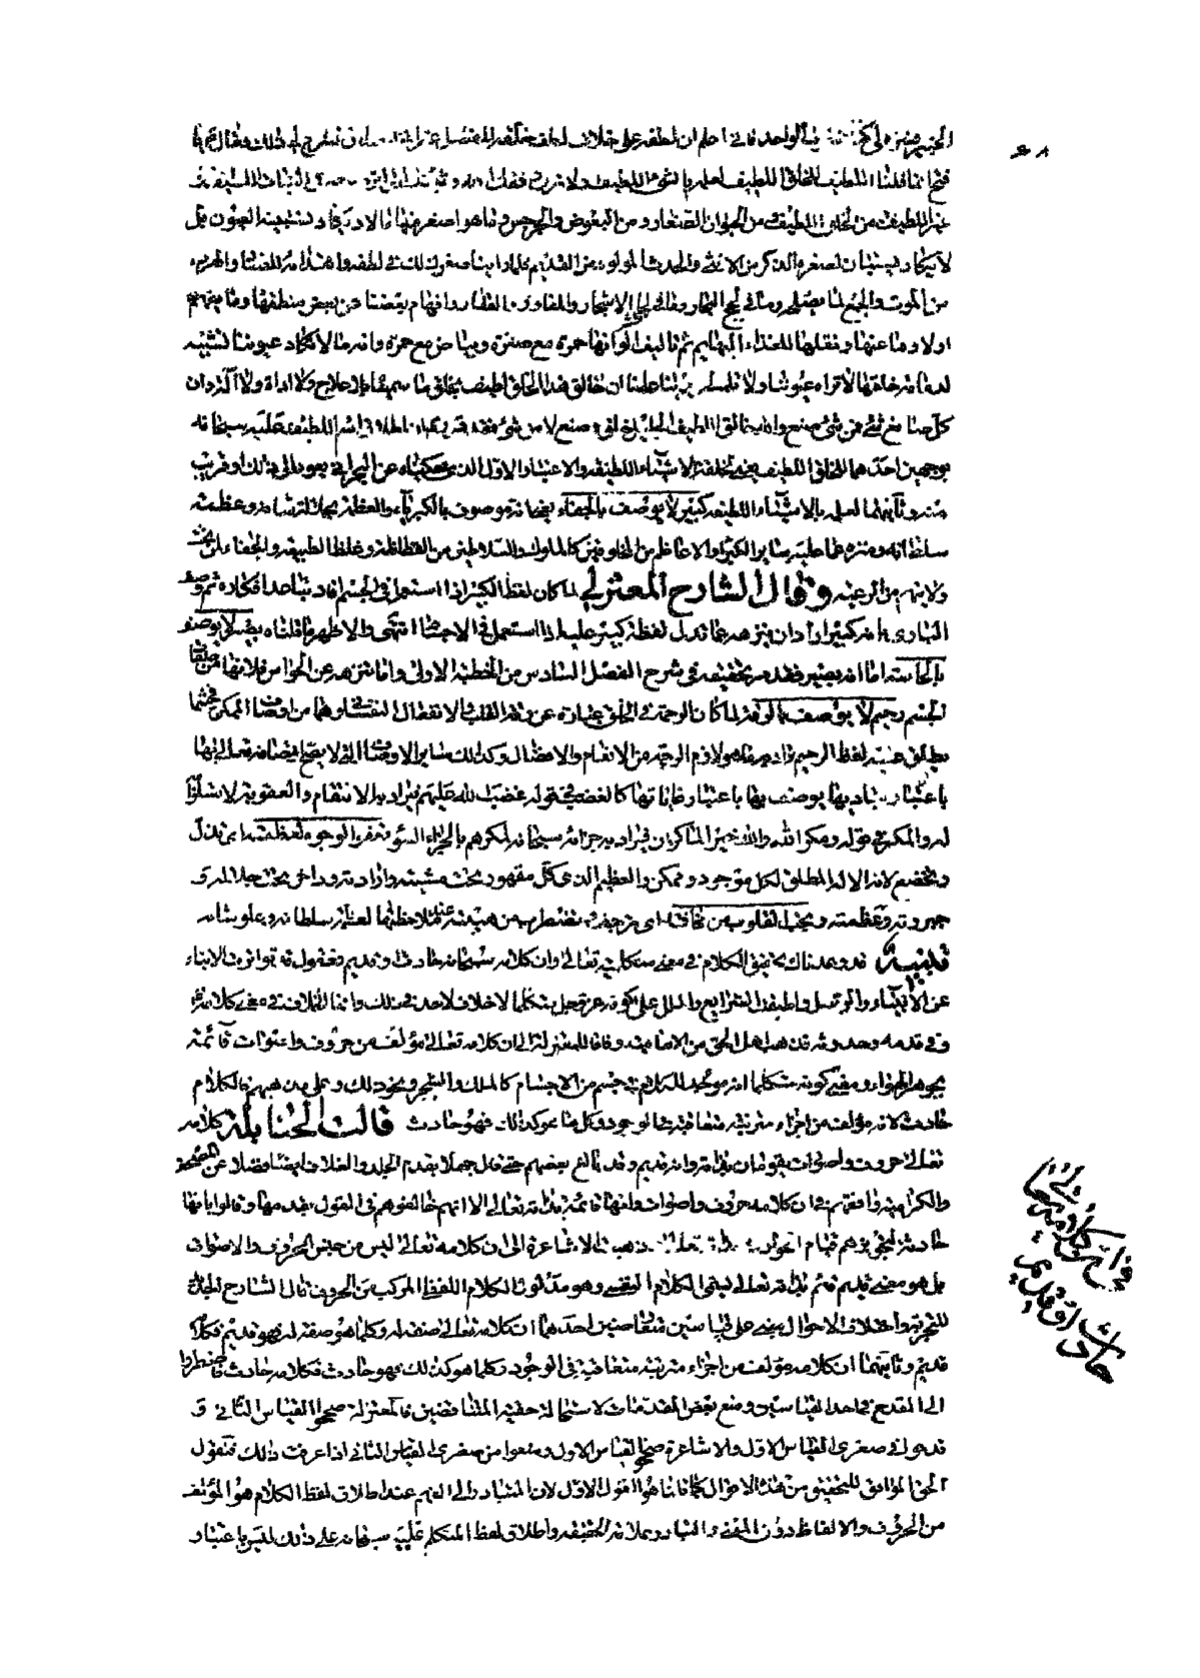 فتح انما قلنا اللطيف للخلق اللطيف لعلمه بالشيء اللطيف ولا
الخلق اللطيف من الحيوان الصغار ومن البعوض والجرجس وما هو اصغر منها ما لا تكاد تستبينه العيون بل
لا يكاد يستبان لصغره الذكر من الانثى والحدث المولود من القديم فلما راينا صغر ذلك في لطفه واهتداءه للفساد والهرب
من الموت والجمع لما يصلحه وما في لجج البحار وما في لحاء الاشجار والمفاوز والقفار وافهام بعضها عن بعض منطقها وما يفهم به
اولادها عنها ونقلها للغذاء اليها ثم تاليف الوانها حمرة مع صفرة وبياض مع حمرة وانه ما لا تكاد عيوننا تستبينه
لدمامة خلقها لا تراه عيوننا ولا تلمسه ايدينا علمنا ان خالق هذا الخلق لطيف بخلق ما سميناه بلا علاج ولا اداة ولا آلة وان
كل صانع شيء فمن شيء صنع والله الخالق اللطيف الجليل خلق وصنع لا من شيء فقد اطلاق اسم اللطيف عليه سبحانه
بوجهين احدهما للخلق اللطيف يعني لخلقه الاشياء اللطيفة والاعتبار الاول الذي حكيناه عن البحراني يعود الى ذلك او قريب
منه وثانيهما لعلمه بالاشياء اللطيفة كبير لا يوصف بالجفاء يعني انه موصوف بالكبرياء والعظمة لجلالة شانه وعظمة
سلطانه ومنزه عما عليه سائر الكبراء والاعاظم من المخلوقين كالملوك والسلاطين من الفظاظة وغلظ الطبيعة والجفاء لمن تحت
ولايتهم من الرعية وقال الشارح المعتزلي لما كان لفظ الكبير اذا استعمل في الجسم افاد تباعد اقطاره ثم وصف
الباري بانه كبير اراد ان ينزهه عما تدل لفظة كبير عليه اذا استعمل في الاجسام انتهى والاظهر ما قلناه بصير لا يوصف
بالحاسة اما انه بصير فقد مر تحقيقه في شرح الفصل السادس من الخطبة الاولى واما تنزهه عن الحواس فلانها من صفات
الجسم رحيم لا يوصف بالرقة لما كان الرحمة في الخلق عبارة عن رقة القلب والانفعال النفساني وهما من اوصاف الممكن فحيثما
يطلق عليه لفظ الرحيم يراد به ما هو لازم الرحمة من الانعام والافضال وكذلك سائر الاوصاف التي لا يصح اتصافه تعالى بها
باعتبار مباديها يوصف بها باعتبار غاياتها كالغضب في قوله غضب الله عليهم فيراد به الانتقام والعقوبة لاستلزا
له والمكر في قوله ومكروا ومكر الله والله خير الماكرين فيراد به جزائه سبحانه لمكرهم بالجزاء السوء تعنو الوجوه لعظمته اي تذل
وتخضع لانه الاله المطلق لكل موجود وممكن والعظيم الذي كل مقهور تحت مشيته وارادته وداخر تحت جلاله و
جبروته وعظمته وتجب القلوب من مخافته اي ترجف وتضطرب من هيبته عند ملاحظتها لعظمة سلطانه وعلو شانه
تنبيه قد وعدناك تحقيق الكلام في معنى متكلميته تعالى وان كلامه سبحانه حادث او قديم فنقول قد تواترت الانباء
عن الانبياء والرسل واطبقت الشرايع والملل على كونه عز وجل متكلما لا خلاف لاحد في ذلك وانما الخلاف في معنى كلامه
وفي قدمه وحدوثه فذهب اهل الحق من الامامية وفاقا للمعتزلة الى ان كلامه تعالى مؤلف من حروف واصوات قائمة
بجوهر الهواء ومعنى كونه متكلما انه موجد للكلام في جسم من الاجسام كالملك والشجر ونحو ذلك وعلى مذهبهم فالكلام
حادث لانه مؤلف من اجزاء مترتبة متعاقبة في الوجود وكل ما هو كذلك فهو حادث قالت الحنابلة كلامه
تعالى حروف واصوات يقومان بذاته وانه قديم وقد بالغ بعضهم حتى قال جهلا بقدم الجلد والغلاف ايضا فضلا عن المصحف
والكرامية وافقهم في ان كلامه حروف واصوات وانها قائمة بذاته تعالى الا انهم خالفوهم في القول بقدمها وقالوا بانها
حادثة لتجويزهم قيام الحوادث بذاته تعالى وذهبت الاشاعرة الى ان كلامه تعالى ليس من جنس الحروف والاصوات
بل هو معنى قديم قائم بذاته تعالى يسمى الكلام النفسي وهو مدلول الكلام اللفظي المركب من الحروف قال الشارح الجديد
للتجريد واختلاف الاحوال مبني على قياسين متعارضين احدهما ان كلامه تعالى صفة له وكلما هو صفة له فهو قديم فكلامه
قديم وثانيهما ان كلامه مؤلف من اجزاء مترتبة متعاقبة في الوجود وكلما هو كذلك فهو حادث فكلامه حادث فاضطروا
الى القدح في احد القياسين ومنع بعض المقدمات لاستحالة حقية المتناقضين فالمعتزلة صححوا القياس الثاني و
قدحوا في صغرى القياس الاول والاشاعرة صححوا القياس الاول ومنعوا من صغرى القياس الثاني اذا عرفت ذلك فنقول
الحق الموافق للتحقيق من هذه الاقوال كما قلنا هو القول الاول لان المتبادر الى الفهم عند اطلاق لفظ الكلام هو المؤلف
من الحروف والالفاظ دون المعنى والتبادر علامة الحقيقة واطلاق لفظ المتكلم عليه سبحانه على ذلك ليس باعتبار
في ان كلامه تعالى
حادث او قديم